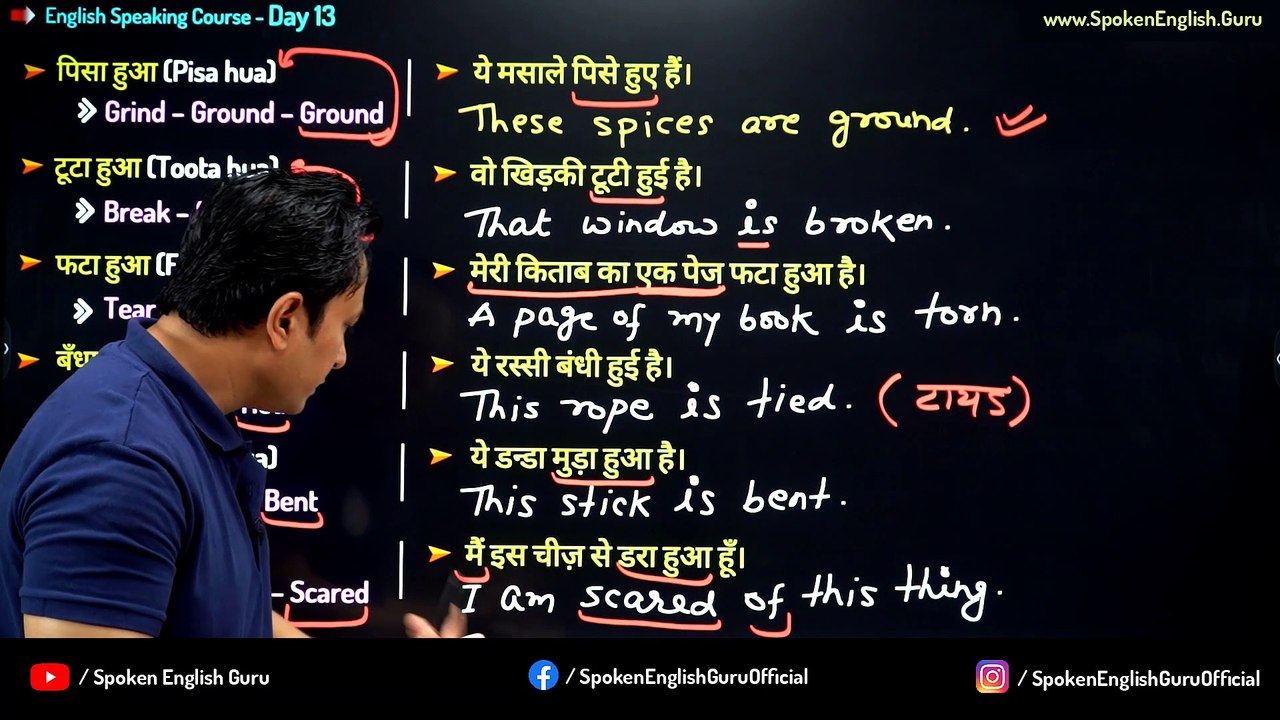 English Speaking Course - Day 13
www.SpokenEnglish.Guru
पिसा हुआ (Pisa hua)
Grind – Ground – Ground
ये मसाले पिसे हुए हैं।
These spices are ground.
टूटा हुआ (Toota hua)
Break –
वो खिड़की टूटी हुई है।
That window is broken.
फटा हुआ
Tear
मेरी किताब का एक पेज फटा हुआ है।
A page of my book is torn.
ये रस्सी बंधी हुई है।
This rope is tied. (टायड)
Bent
ये डन्डा मुड़ा हुआ है।
This stick is bent.
– Scared
मैं इस चीज़ से डरा हुआ हूँ।
I am scared of this thing.
/ Spoken English Guru
/ SpokenEnglishGuruOfficial
/ SpokenEnglishGuruOfficial